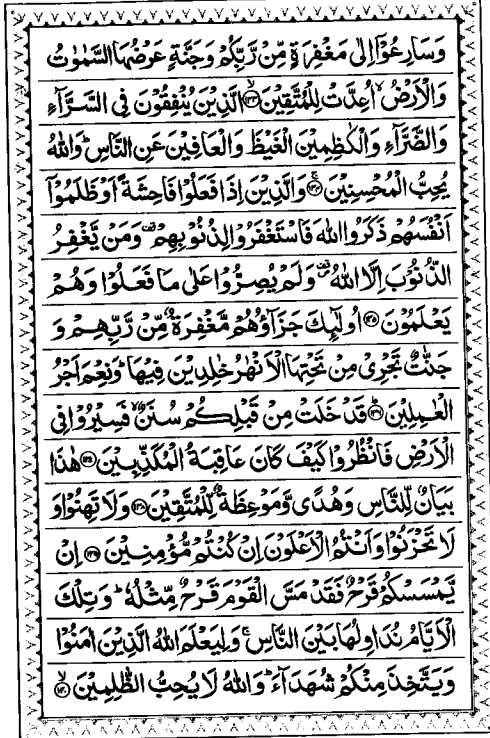 وَسَارِعُوْٓا اِلٰى مَغْفِرَةٍ مِّنْ رَّبِّكُمْ وَجَنَّةٍ عَرْضُهَا السَّمٰوٰتُ
وَالْاَرْضُ ۙ اُعِدَّتْ لِلْمُتَّقِيْنَ ۙ﴿۱۳۳﴾ الَّذِيْنَ يُنْفِقُوْنَ فِى السَّرَّآءِ
وَالضَّرَّآءِ وَالْكٰظِمِيْنَ الْغَيْظَ وَالْعَافِيْنَ عَنِ النَّاسِ ؕ وَاللّٰهُ
يُحِبُّ الْمُحْسِنِيْنَ ۚ﴿۱۳۴﴾ وَالَّذِيْنَ اِذَا فَعَلُوْا فَاحِشَةً اَوْ ظَلَمُوْٓا
اَنْفُسَهُمْ ذَكَرُوا اللّٰهَ فَاسْتَغْفَرُوْا لِذُنُوْبِهِمْ وَمَنْ يَّغْفِرُ
الذُّنُوْبَ اِلَّا اللّٰهُ وَلَمْ يُصِرُّوْا عَلٰى مَا فَعَلُوْا وَهُمْ
يَعْلَمُوْنَ ﴿۱۳۵﴾ اُولٰٓئِكَ جَزَآؤُهُمْ مَّغْفِرَةٌ مِّنْ رَّبِّهِمْ وَ
جَنّٰتٌ تَجْرِىْ مِنْ تَحْتِهَا الْاَنْهٰرُ خٰلِدِيْنَ فِيْهَا ؕ وَنِعْمَ اَجْرُ
الْعٰمِلِيْنَ ؕ﴿۱۳۶﴾ قَدْ خَلَتْ مِنْ قَبْلِكُمْ سُنَنٌ ۙ فَسِيْرُوْا فِى
الْاَرْضِ فَانْظُرُوْا كَيْفَ كَانَ عَاقِبَةُ الْمُكَذِّبِيْنَ ﴿۱۳۷﴾ هٰذَا
بَيَانٌ لِّلنَّاسِ وَهُدًى وَّمَوْعِظَةٌ لِّلْمُتَّقِيْنَ ﴿۱۳۸﴾ وَلَا تَهِنُوْا وَ
لَا تَحْزَنُوْا وَاَنْتُمُ الْاَعْلَوْنَ اِنْ كُنْتُمْ مُّؤْمِنِيْنَ ﴿۱۳۹﴾ اِنْ
يَّمْسَسْكُمْ قَرْحٌ فَقَدْ مَسَّ الْقَوْمَ قَرْحٌ مِّثْلُهٗ ؕ وَتِلْكَ
الْاَيَّامُ نُدَاوِلُهَا بَيْنَ النَّاسِ ۚ وَلِيَعْلَمَ اللّٰهُ الَّذِيْنَ اٰمَنُوْا
وَيَتَّخِذَ مِنْكُمْ شُهَدَآءَ ؕ وَاللّٰهُ لَا يُحِبُّ الظّٰلِمِيْنَ ۙ﴿۱۴۰﴾